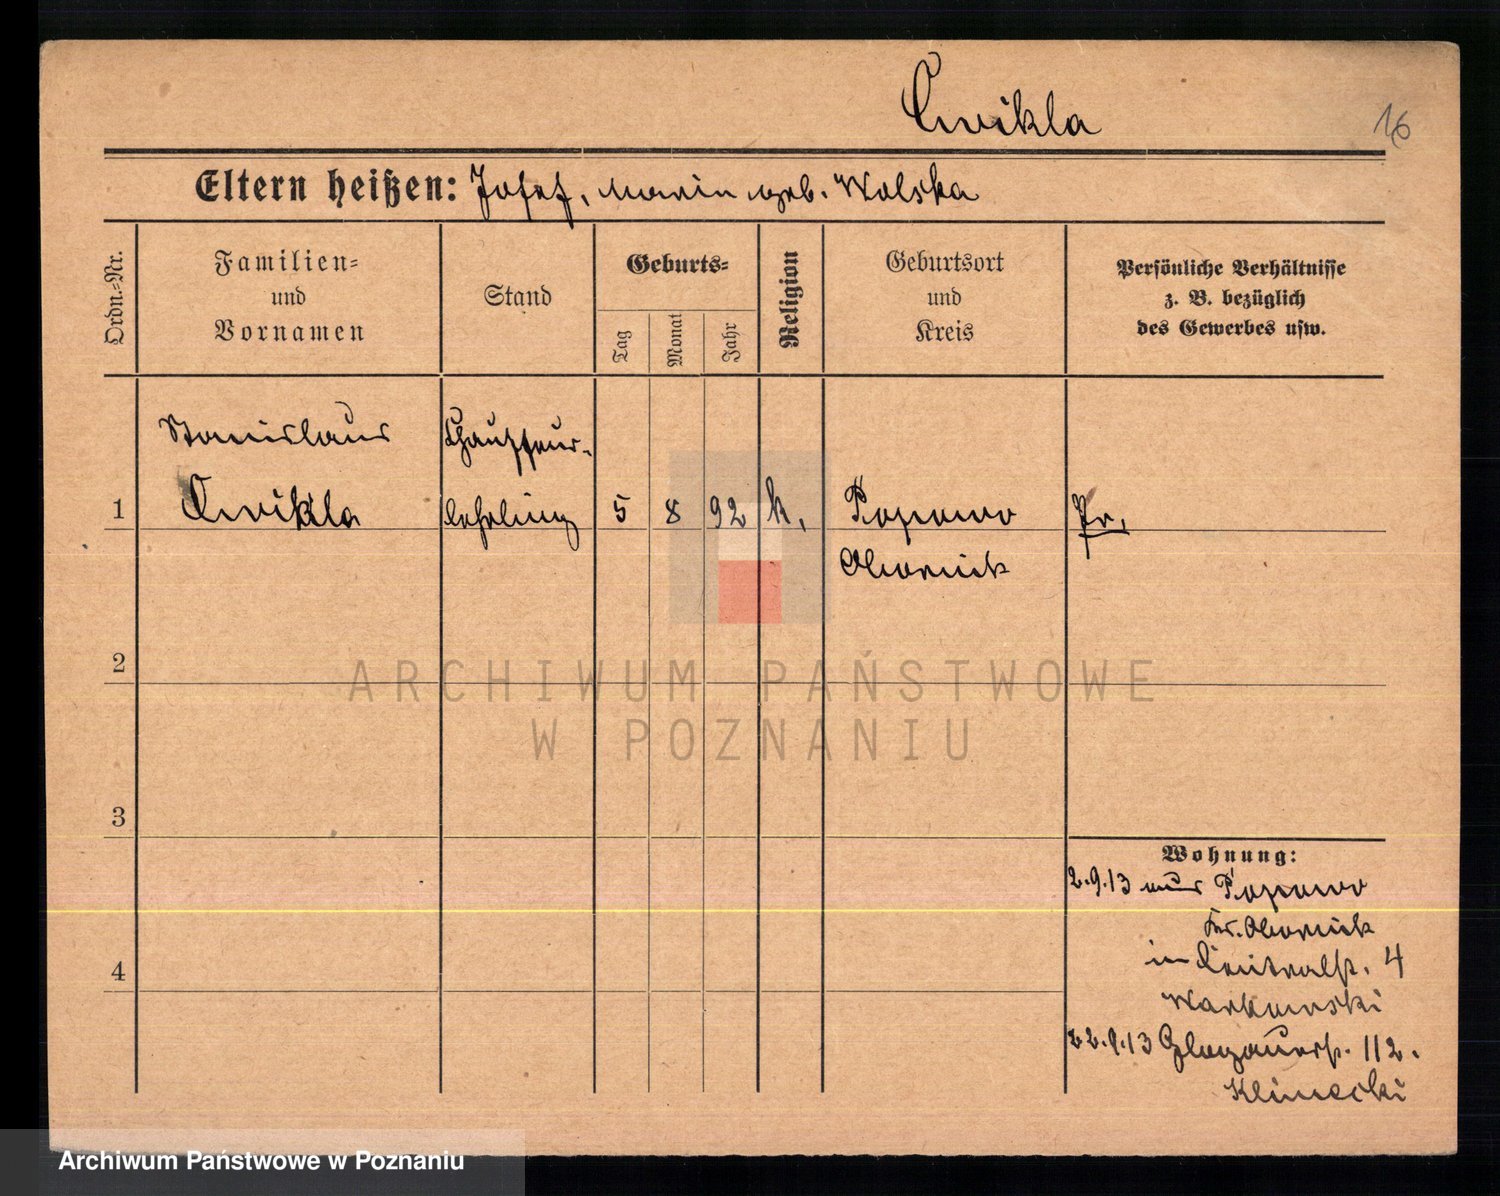 Cwikla
16
Eltern heißen: Josef, Maria geb. Wolska
Ordn.-Nr.
Familien-
und
Vornamen
Stand
Geburts-
Tag
Monat
Jahr
Religion
Geburtsort
und
Kreis
Persönliche Verhältnisse
z. B. bezüglich
des Gewerbes usw.
Stanislaus Chauffeur-
1 Cwikla lehrling 5 8 92 k. Popowo Pr.
Obornik
2
ARCHIWUM PAŃSTWOWE
W POZNANIU
3
Wohnung:
2.9.13 aus Popowo
Kr. Obornik
4
in Centralstr. 4
Warkowski
22.9.13 Glogauerstr. 112.
Klinecki
Archiwum Państwowe w Poznaniu